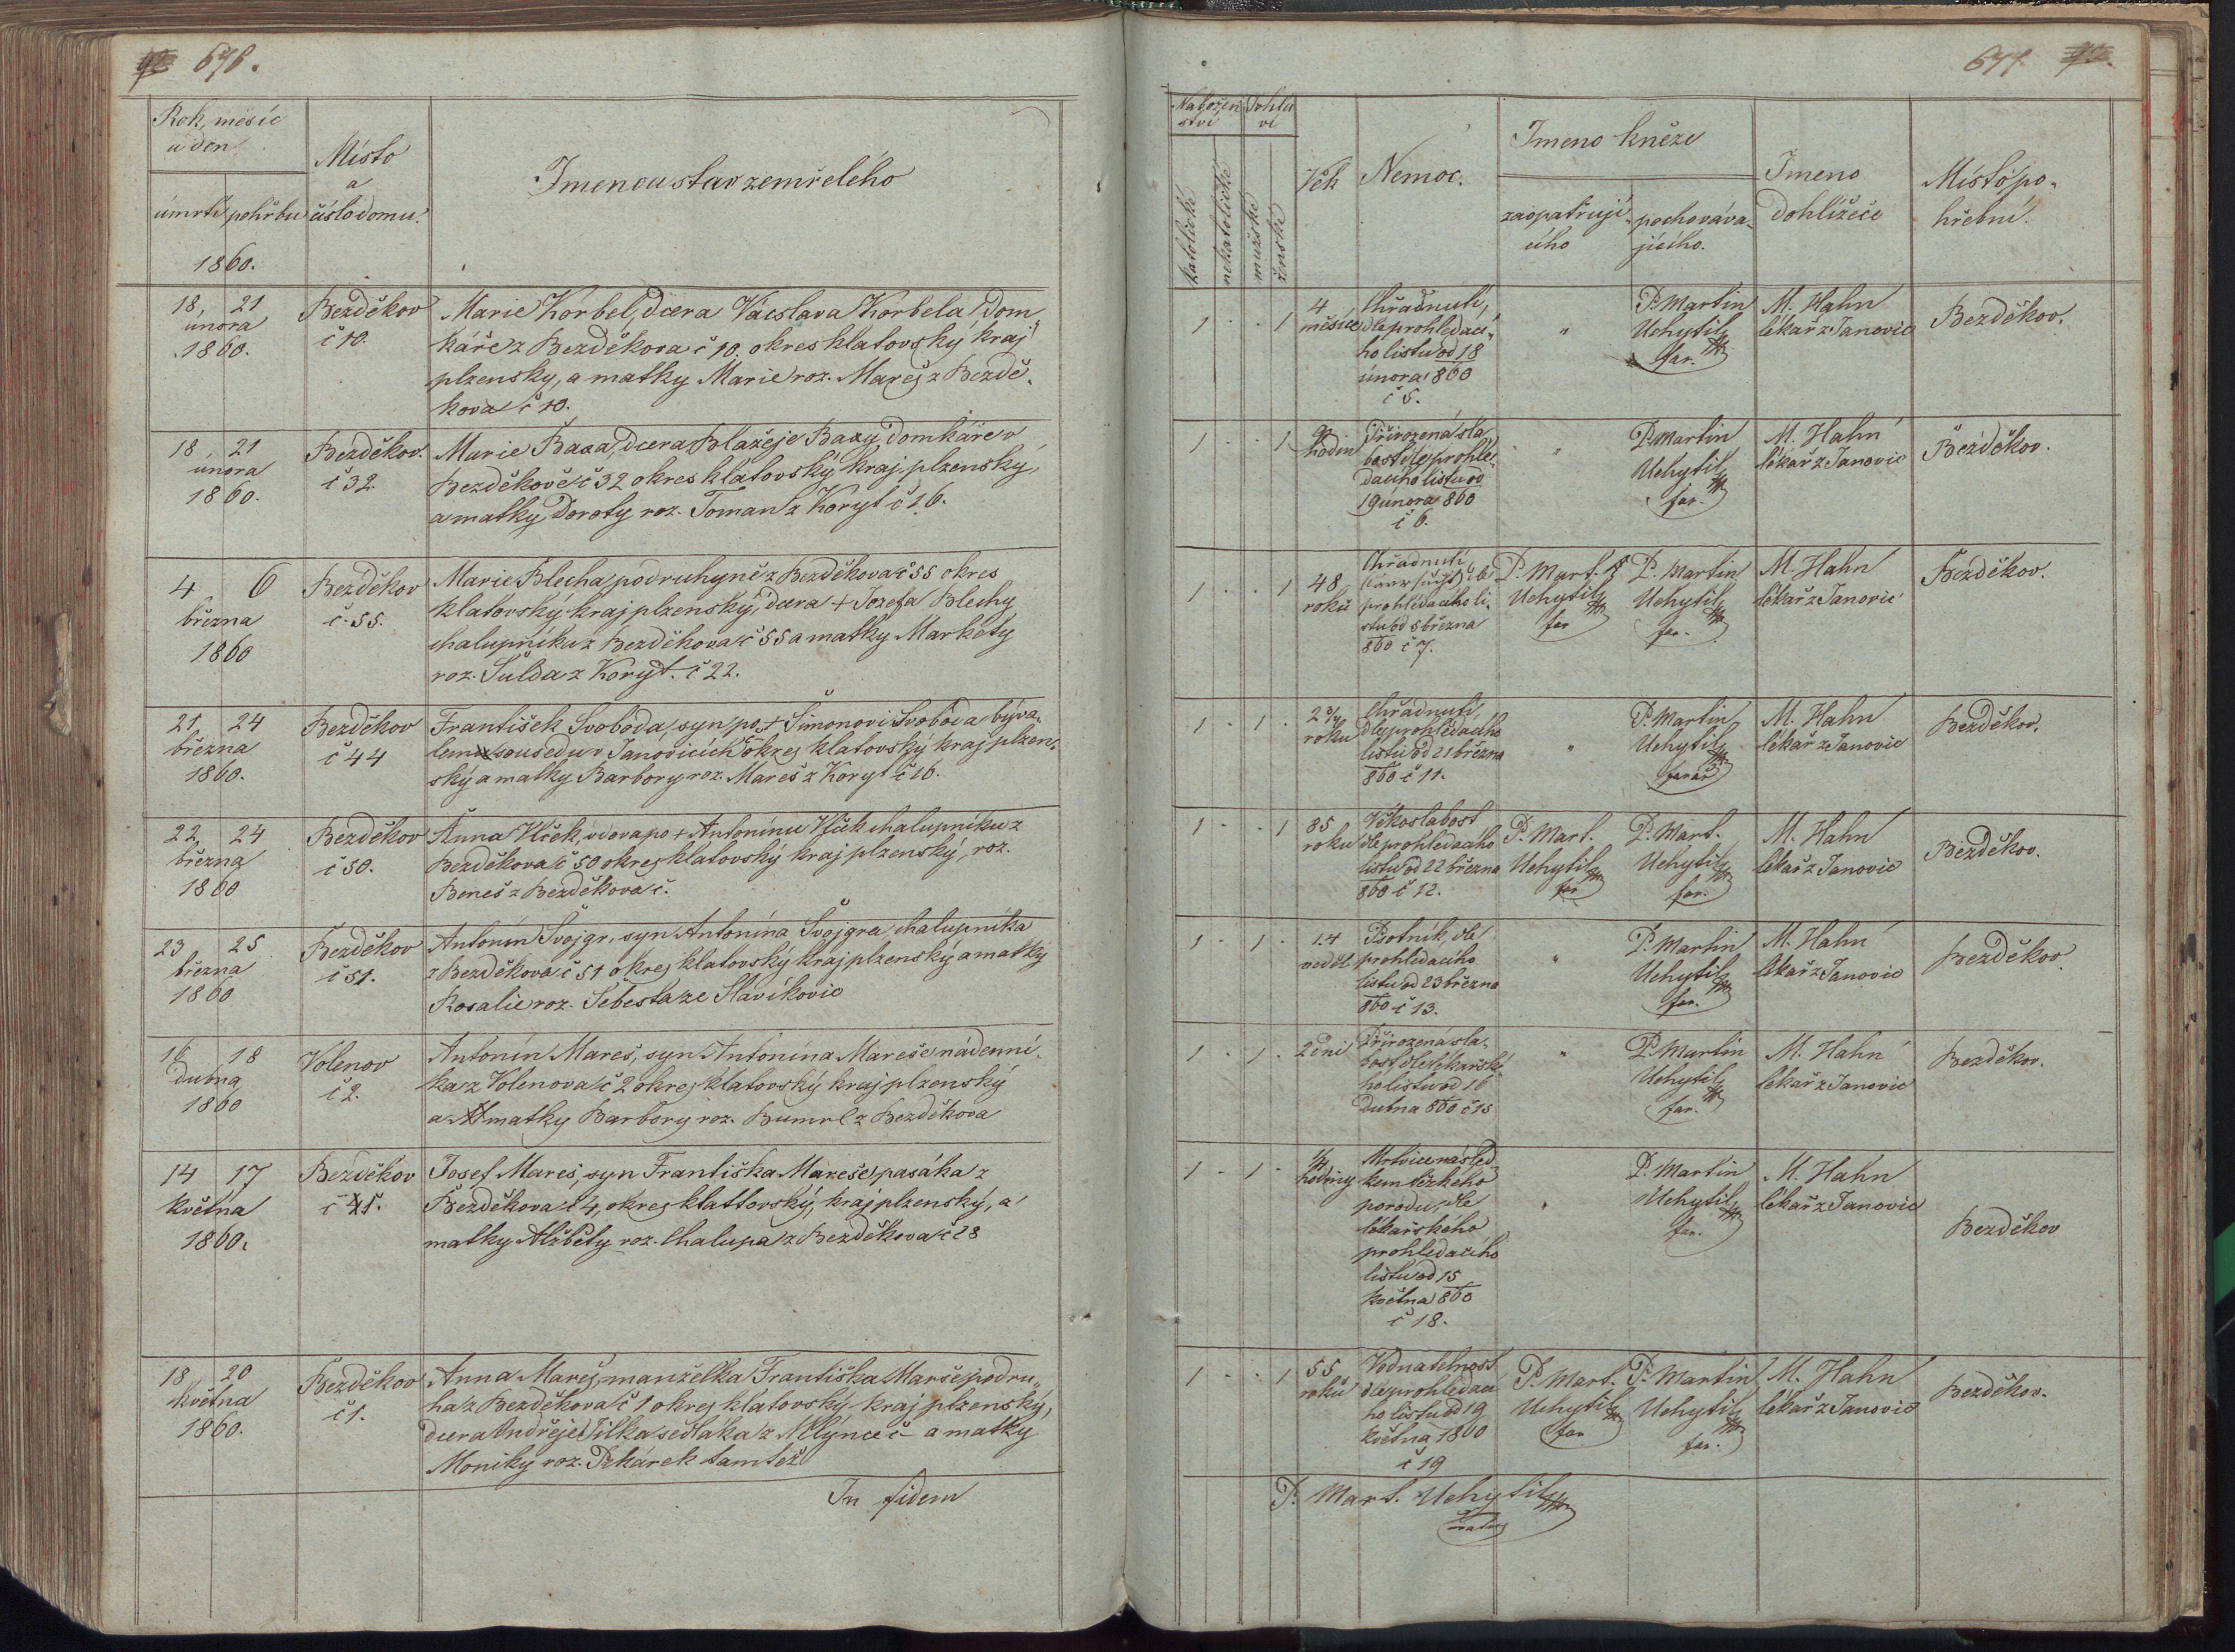 676.
Rok, měsíc
a den
Místo
a
číslo domu.
úmrtí pohřbu
1860.
Jmeno a stav zemřelého
18 21
února
1860.
Bezděkov
č 10.
Marie Körbel, dcera Václava Körbela dom
káře z Bezděkova č 10. okres klatovský kraj
plzensky, a matky Marie roz. Mareš z Bezdě-
kova č 10.
18 21
února
1860.
Bezděkov.
č 32.
Marie Baxa, dcera Blažeje Baxy, domkáře v
Bezděkově č 32 okres klatovský kraj plzenský,
a matky Doroty roz. Toman z Koryt č 16.
4 6
března
1860
Bezděkov
č. 55.
Marie Blecha podruhyně z Bezděkova č 55 okres
klatovský kraj plzenský, dcera + Jozefa Blechy
chalupníka z Bezděkova č 55 a matky Markéty
roz. Šulda z Koryt. č 22.
21 24
března
1860.
Bezděkov
č 44
František Svoboda, syn po + Šimonovi Svoboda býva-
lem sousedu v Janovicích okres klatovský kraj plzen-
ský a matky Barbory roz. Mareš z Koryt č 16.
22 24
března
1860
Bezděkov
č 50.
Anna Vlček, vdova po + Antonínu Vlček chalupníku z
Bezděkova č 50 okres klatovský kraj plzenský, roz.
Beneš z Bezděkova č.
23 25
března
1860
Bezděkov
č 51.
Antonín Švojgr, syn Antonína Švojgra chalupníka
z Bezděkova č 51 okres klatovský kraj plzenský a matky
Rosalie roz. Šebesta ze Slavikovic
16 18
dubna
1860
Volenov
č 2.
Antonín Mareš, syn Antonína Mareše nádenní-
ka z Volenova č 2 okres klatovský kraj plzenský
a matky Barbory roz. Bumrl z Bezděkova
14 17
května
1860.
Bezděkov
Josef Mareš, syn Františka Mareše, pasáka z
Bezděkova č 4, okres klattovský, kraj plzenský, a
matky Alžběty roz. Chalupa z Bezděkova č 28
18 20
května
1860.
Bezděkov
č 1.
Anna Mareš, manželka Františka Mareše podru-
ha z Bezděkova č 1 okres klatovský kraj plzenský,
dcera Andřeje Jílka sedláka z Mlýnce č – a matky
Moniky roz. Pekárek tamtéž
In fidem
677.
Nabožen
ství
Pohla
ví
katolické
nekatolické
mužské
ženské
Věk
Nemoc.
Jmeno kněze
zaopatřují-
cího
pochováva-
jícího.
Jmeno
Dohlížeče
Místo po-
hřební.
1 . . 1
4
měsíce
Chřadnutí,
dle prohledací-
ho listu od 18
února 860
č 5.
"
P. Martin
Uchytil
far.
M. Hahn
lékař z Janovic
Bezděkov.
1 . . 1
hodin
Přirozená sla-
bost dle prohlé-
dacího listu od
19 února 860
č 6.
"
P. Martin
Uchytil
far.
M. Hahn
lékař z Janovic
Bezděkov.
1 . . 1
48
roků
Chřadnutí
prohlédacího li-
stu od 5 března
860 č 7.
P. Mart.
Uchytil
far
P. Martin
Uchytil
far.
M. Hahn
lékař z Janovic
Bezděkov.
1 . 1 .
roku
Chřadnutí,
dle prohlédacího
listu od 21 března
860 č 11.
"
P. Martin
Uchytil
farář
M. Hahn
lékař z Janovic
Bezděkov.
1 . . 1
85
roku
Věkoslabost
dle prohledacího
listu od 22 března
860 č 12.
P. Mart.
Uchytil
far
P. Mart.
Uchytil
far.
M. Hahn
lékař z Janovic
Bezděkov.
1 . 1 .
14
neděl
Psotník, dle
prohledacího
listu od 23 března
860 č 13.
"
P. Martin
Uchytil
far.
M. Hahn
lékař z Janovic
Bezděkov
1 . 1 .
2 dni
Přirozená sla-
bost dle lékařské-
ho listu od 16
dubna 860 č 15
"
P. Martin
Uchytil
far.
M. Hahn
lékař z Janovic
Bezděkov.
1 . 1 .
hodiny
Mrtvice násled-
kem těžkého
porodu, dle
lékařského
prohledacího
listu od 15
května 860
č 18.
"
P. Martin
Uchytil
far.
M. Hahn
lékař z Janovic
Bezděkov
1 . . 1
55
roků
Vodnatelnost
dle prohledací
ho listu od 19
května 1860
č 19
P. Mart.
Uchytil
far
P. Martin
Uchytil
far.
M. Hahn
lékař z Janovic
Bezděkov.
P. Mart. Uchytil